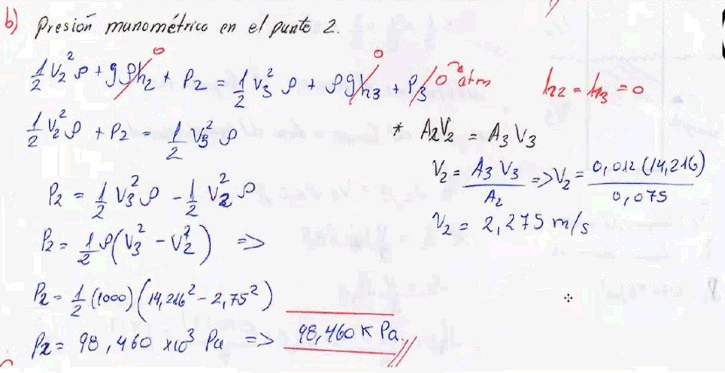 b) Presión manométrica en el punto 2.
½ V₂² ρ + gρh₂ + P₂ = ½ V₃² ρ + ρgh₃ + P₃ 0 atm
0
0
h₂ = h₃ = 0
½ V₂² ρ + P₂ = ½ V₃² ρ
* A₂V₂ = A₃V₃
P₂ = ½ V₃² ρ - ½ V₂² ρ
V₂ = A₃V₃/A₂ => V₂ = 0,012 (14,216)/0,075
P₂ = ½ ρ (V₃² - V₂²) =>
V₂ = 2,275 m/s
P₂ = ½ (1000) (14,216² - 2,75²)
P₂ = 98,460 x10³ Pa => 98,460 K Pa.